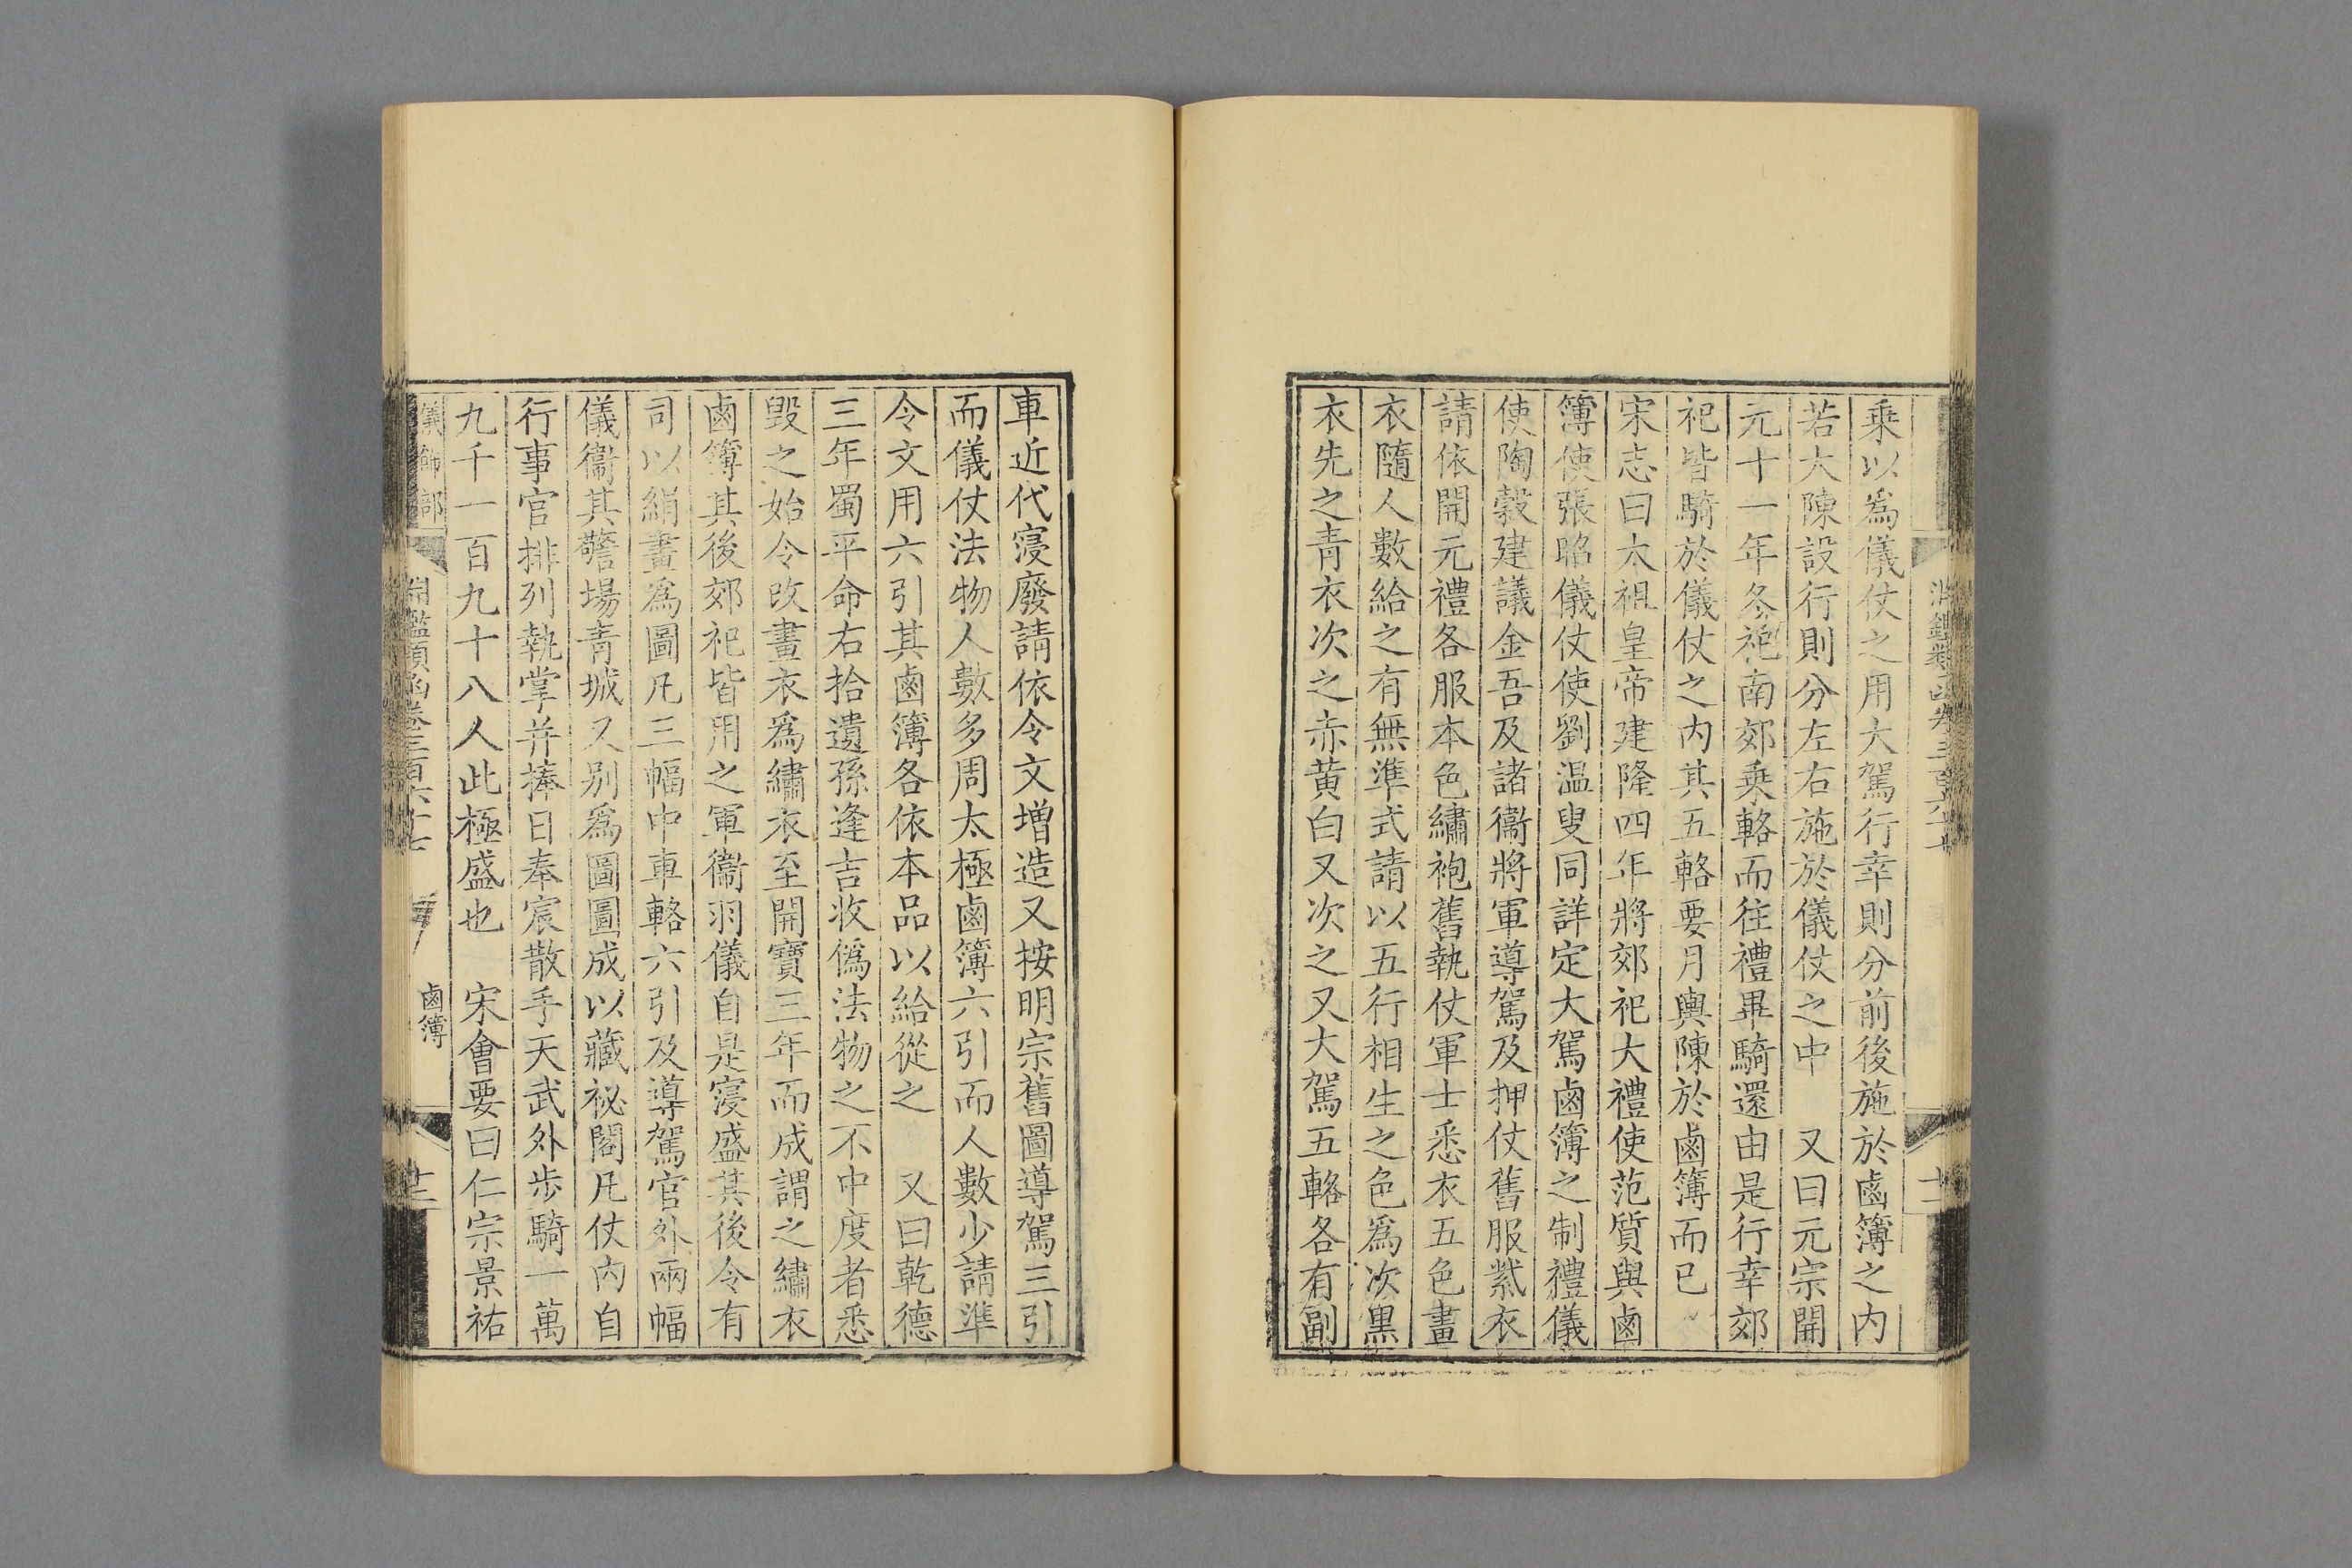 乗以爲儀仗之用大駕行幸則分前後施於鹵簿之内
若大陳設行則分左右施於儀仗之中　又曰元宗開
元十一年冬祀南郊乗輅而往禮畢騎還由是行幸郊
祀皆騎於儀仗之内其五輅要月輿陳於鹵簿而已
宋志曰太祖皇帝建隆四年將郊祀大禮使范質與鹵
簿使張昭儀仗使劉温叟同詳定大駕鹵簿之制禮儀
使陶穀建議金吾及諸衞將軍導駕及押仗舊服紫衣
請依開元禮各服本色繡袍舊執仗軍士悉衣五色畫
衣隨人數給之有無準式請以五行相生之色爲次黒
衣先之青衣次之赤黄白又次之又大駕五輅各有副
車近代寖廢請依令文増造又按明宗舊圖導駕三引
而儀仗法物人數多周太極鹵簿六引而人數少請準
令文用六引其鹵簿各依本品以給從之　又曰乾德
三年蜀平命右拾遺孫逢吉收僞法物之不中度者悉
毁之始令改畫衣爲繡衣至開寶三年而成謂之繡衣
鹵簿其後郊祀皆用之軍衞羽儀自是寖盛其後令有
司以絹畫爲圖凡三幅中車輅六引及導駕官外兩幅
儀衞其警場青城又别爲圖圖成以藏祕閣凡仗内自
行事官排列執掌并捧日奉宸散手天武外歩騎一萬
九千一百九十八人此極盛也　宋會要曰仁宗景祐
儀飾部　淵鑑類函卷三百六十七　鹵簿